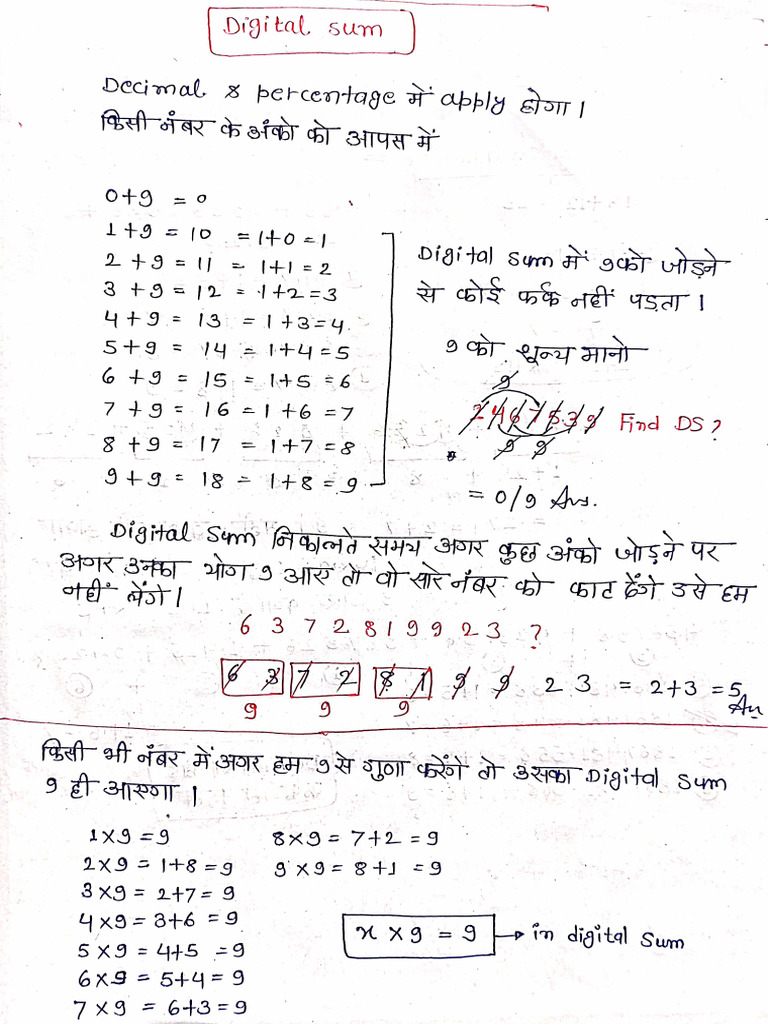 Digital sum
Decimal & percentage में apply होगा।
किसी नंबर के अंको को आपस में
0+9 = 0
1+9 = 10 = 1+0 = 1
2+9 = 11 = 1+1 = 2
3+9 = 12 = 1+2 = 3
4+9 = 13 = 1+3 = 4
5+9 = 14 = 1+4 = 5
6+9 = 15 = 1+5 = 6
7+9 = 16 = 1+6 = 7
8+9 = 17 = 1+7 = 8
9+9 = 18 = 1+8 = 9
Digital sum में 9 को जोड़ने
से कोई फर्क नहीं पड़ता।
9 को शून्य मानो
9
2467539 Find DS?
9 9
= 0/9 Ans.
Digital Sum निकालते समय अगर कुछ अंको जोड़ने पर
अगर उनका योग 9 आए तो वो सारे नंबर को काट देंगे उसे हम
नहीं लेंगे।
6 3 7 2 8 1 9 9 2 3 ?
6 3 7 2 8 1 9 9 2 3 = 2+3 = 5 An
9 9 9
किसी भी नंबर में अगर हम 9 से गुणा करेंगे तो उसका Digital Sum
9 ही आएगा।
1×9 = 9
2×9 = 1+8 = 9
3×9 = 2+7 = 9
4×9 = 3+6 = 9
5×9 = 4+5 = 9
6×9 = 5+4 = 9
7×9 = 6+3 = 9
8×9 = 7+2 = 9
9×9 = 8+1 = 9
x × 9 = 9 → in digital Sum